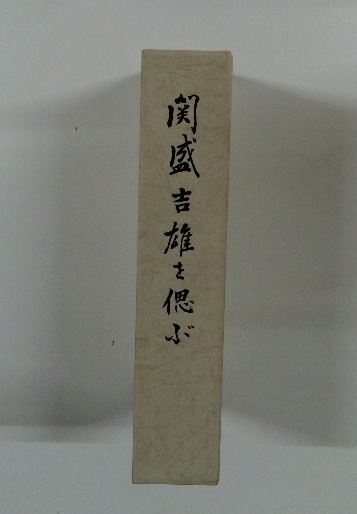 関盛吉雄を偲ぶ